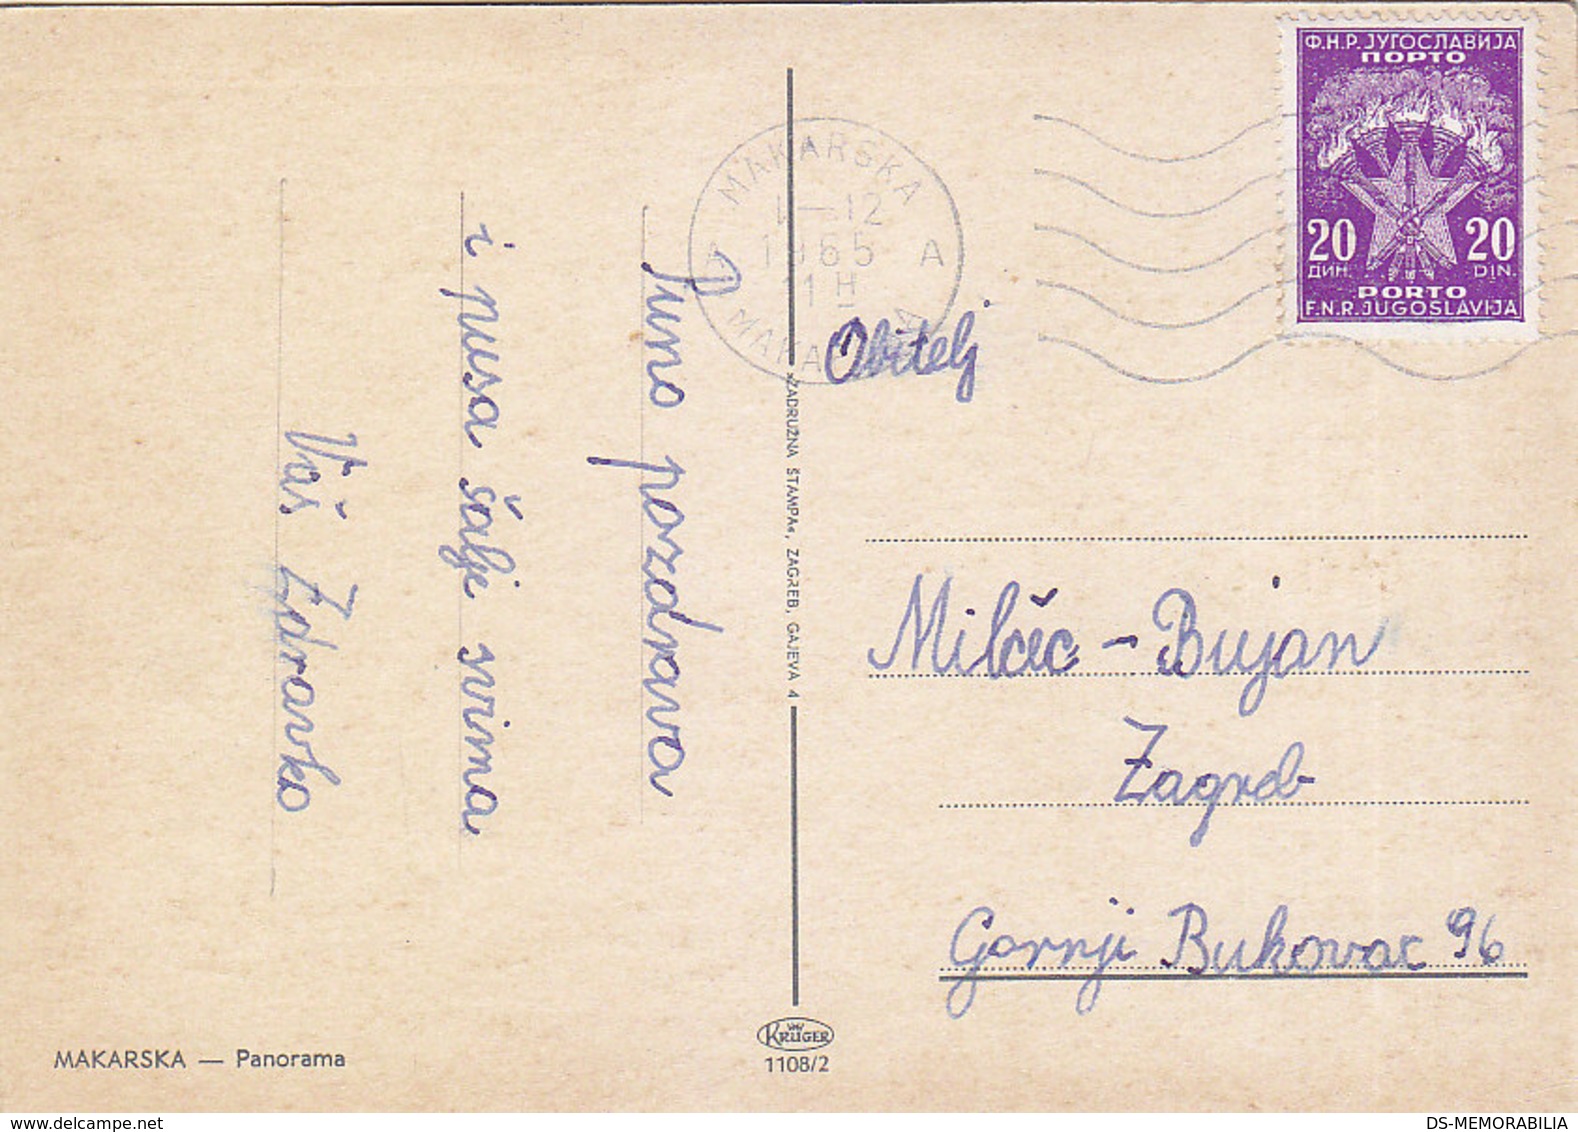 Ф.Н.Р. ЈУГОСЛАВИЈА
ПОРТО
20 20
ДИН. DIN.
PORTO
F.N.R. JUGOSLAVIJA
MAKARSKA
1-12
1965
11 H
A A
Puno pozdrava
i pusa šalje svima
Vaš Zdravko
Obitelj
Milčec - Bujan
Zagreb
Gornji Bukovac 96
»ZADRUŽNA ŠTAMPA«, ZAGREB, GAJEVA 4
MAKARSKA — Panorama
KRÜGER
1108/2
DS-MEMORABILIA